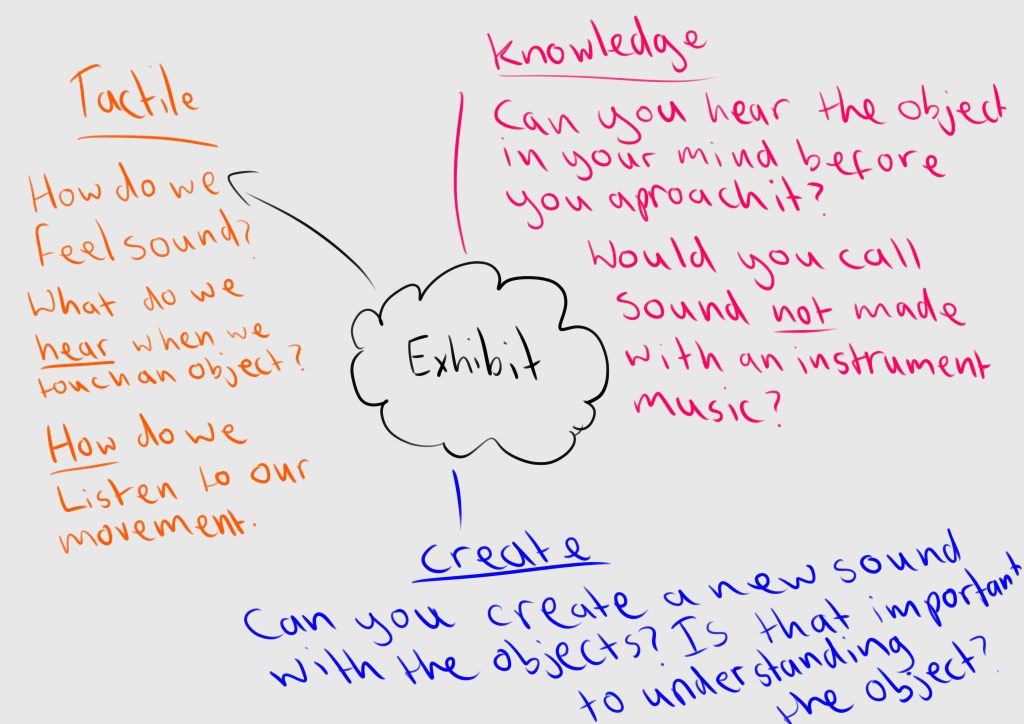 Tactile
How do we
feel sound?
What do we
hear when we
touch an object?
How do we
Listen to our
movement.
Exhibit
Knowledge
Can you hear the object
in your mind before
you aproach it?
Would you call
sound not made
with an instrument
music?
Create
Can you create a new sound
with the objects? Is that important
to understanding
the object?